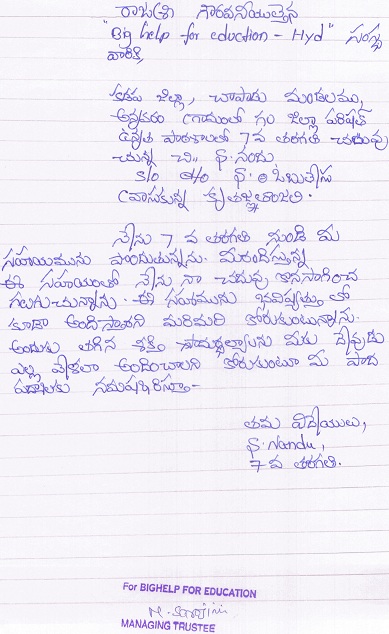 రాజశ్రీ గౌరవనీయులైన
"Big help for eduction - Hyd" సంస్థ
వారికి,
కడప జిల్లా, చాపాడు మండలము,
అన్నవరం గ్రామంలో గల జిల్లా పరిషత్
ఉన్నత పాఠశాలలో 7వ తరగతి చదువు
చున్న చి॥ ఫ్. నందు,
S/o ఫ్. ఓబులేసు
వ్రాసుకున్న కృతజ్ఞతాంజలి.
నేను 7వ తరగతి నుండి మీ
సహాయమును పొందుతున్నాను. మీరందిస్తున్న
ఈ సహాయంతో నేను నా చదువు కొనసాగించ
గలుగుచున్నాను. ఈ సహాయమును భవిష్యత్తులో
కూడా అందిస్తారని మరిమరి కోరుకుంటున్నాను.
అందుకు తగిన శక్తి సామర్థ్యాలను మీకు దేవుడు
ఎల్ల వేళలా అందించాలని కోరుకుంటూ మీ పాద
పద్మాలకు
తమ విధేయులు,
Nandu,
7వ తరగతి.
For BIGHELP FOR EDUCATION
MANAGING TRUSTEE